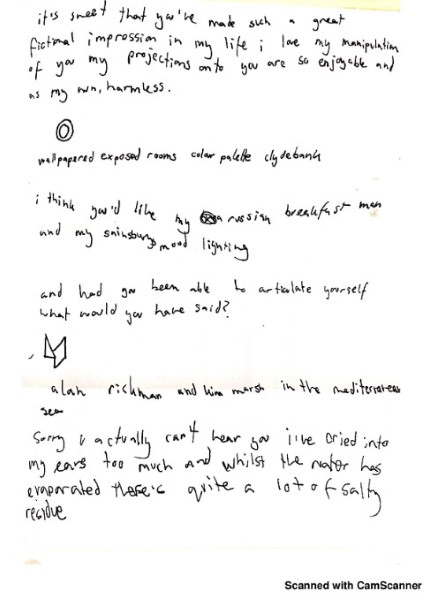 it's sweet that you've made such a great
fictional impression in my life i love my manipulation
of you my projections onto you are so enjoyable and
as my own, harmless.
wallpapered exposed rooms color palette clydebank
i think you'd like my a russian breakfast man
and my sainsburys mood lighting
and had you been able to articulate yourself
what would you have said?
alan rickman and kim marsh in the mediterranean
sea
Sorry i actually can't hear you i've cried into
my ears too much and whilst the water has
evaporated there's quite a lot of salty
residue
Scanned with CamScanner